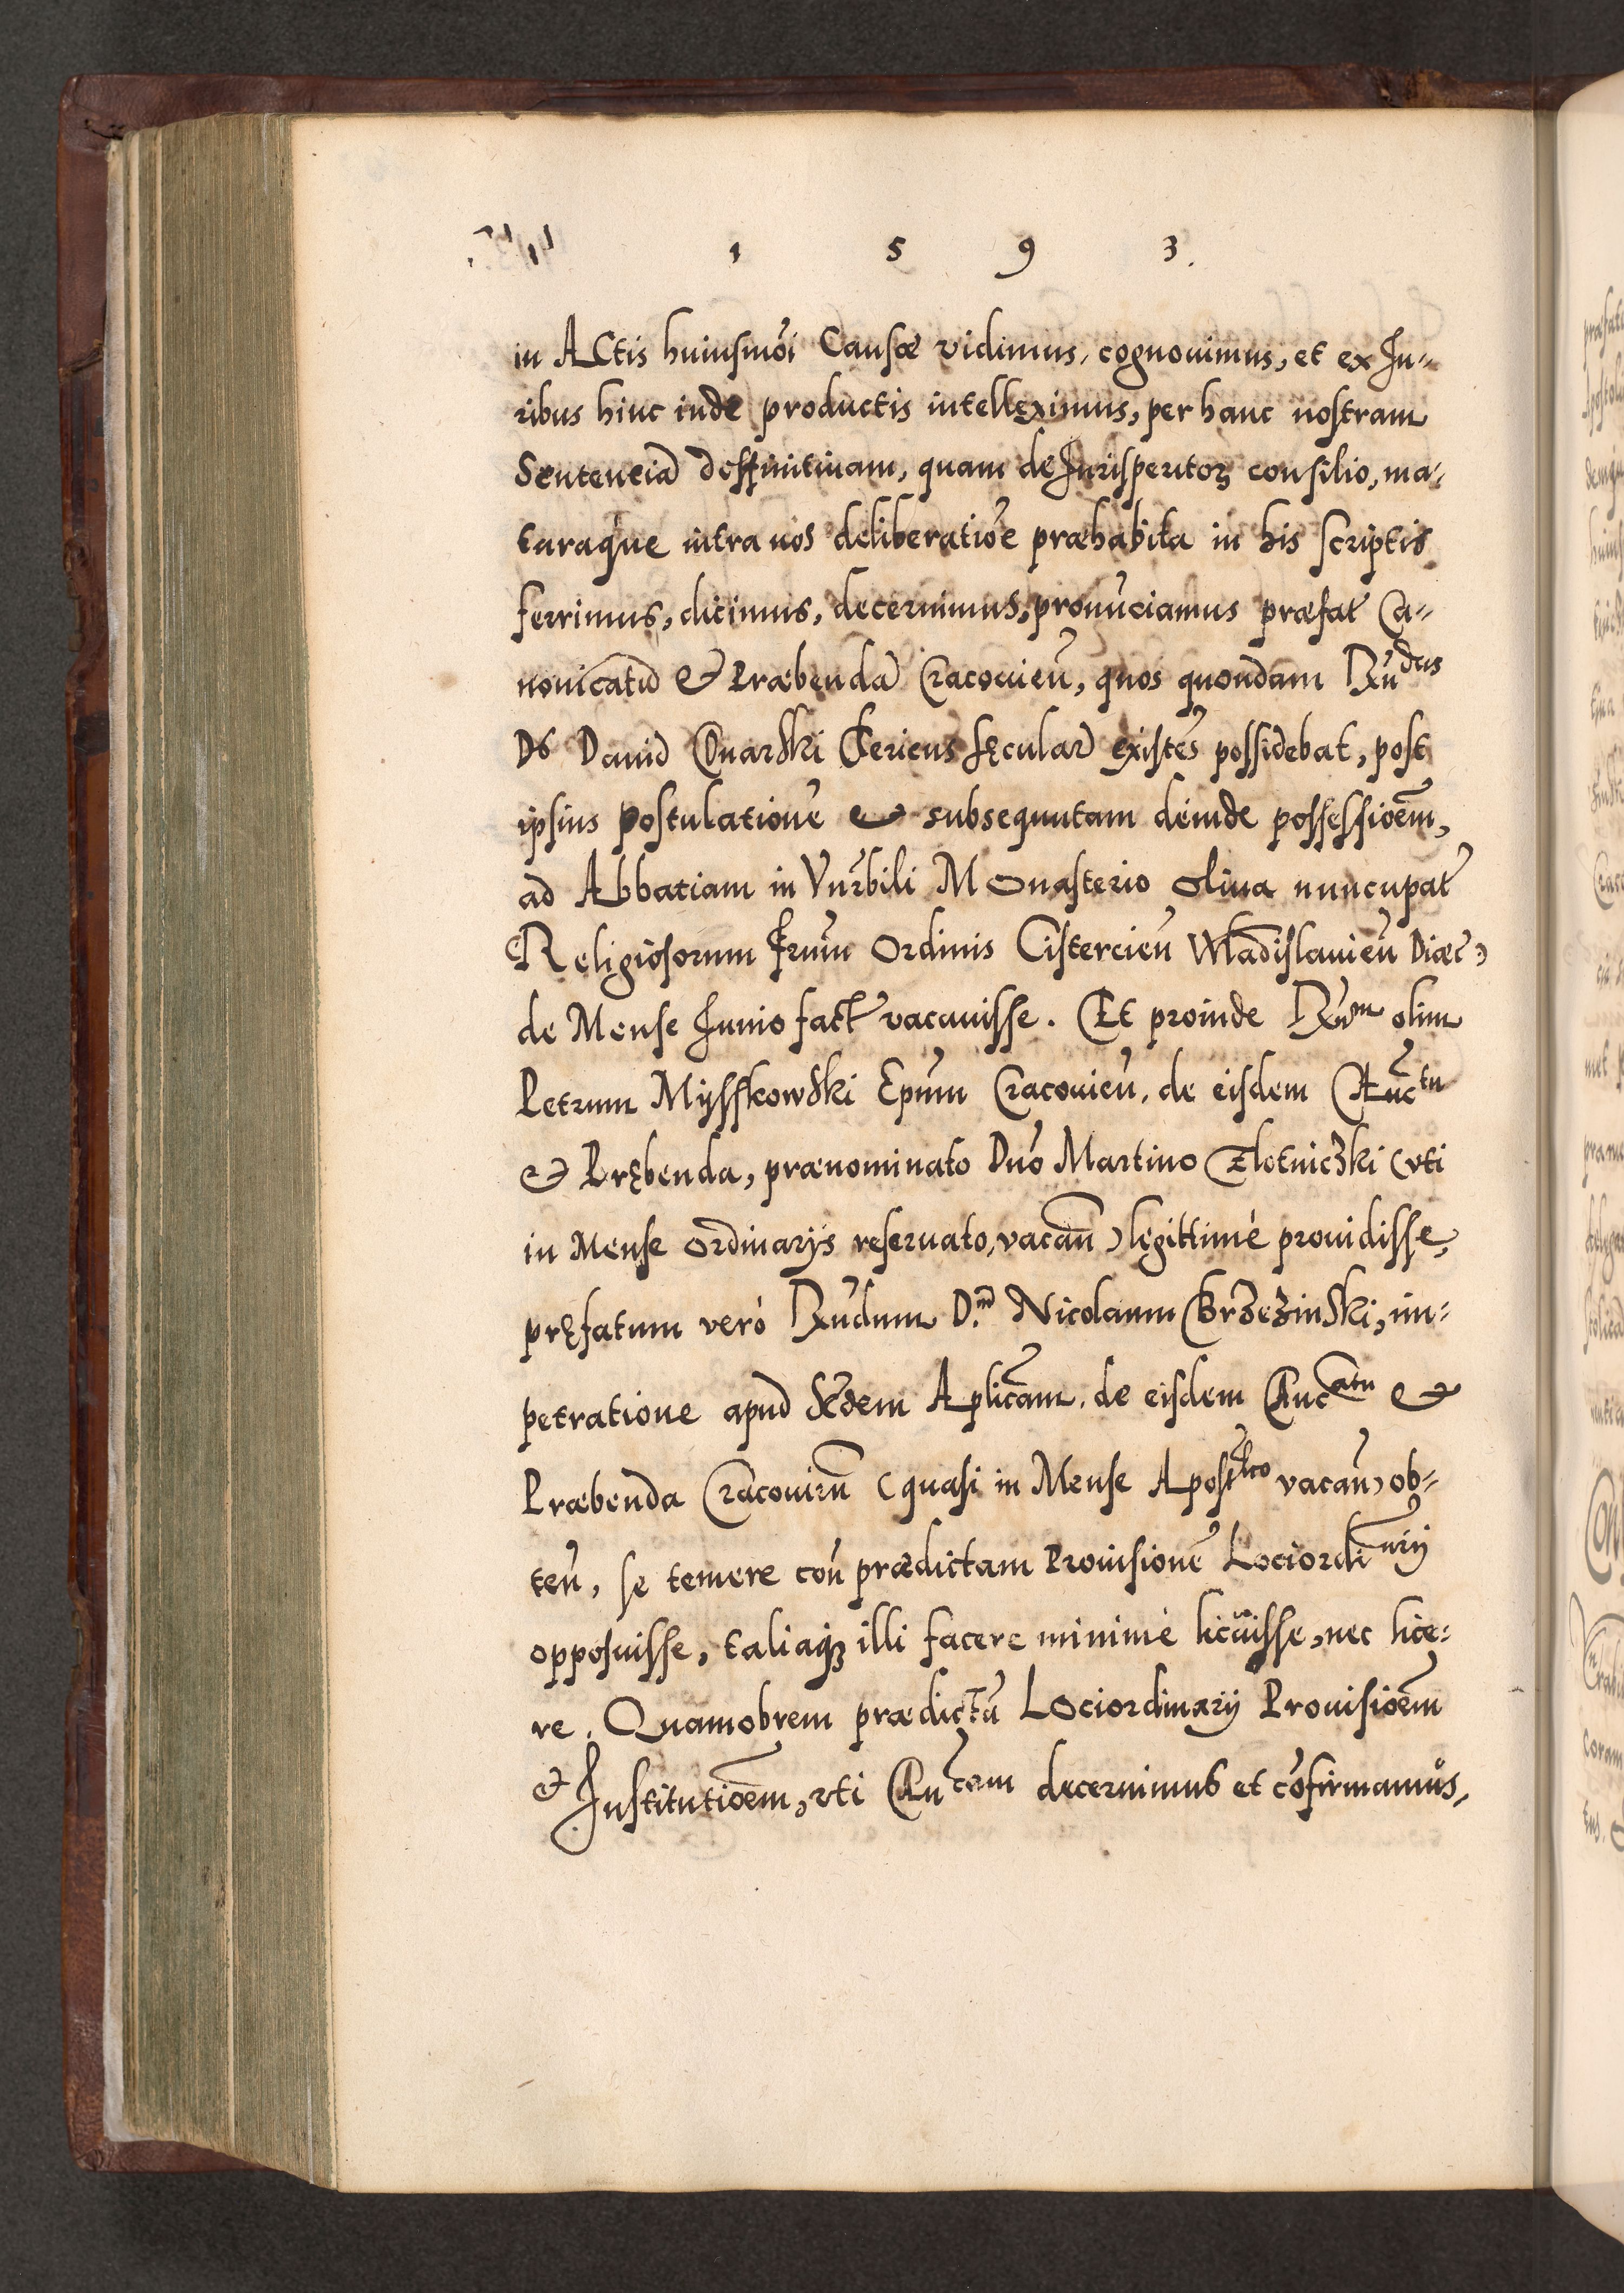 1 5 9 3.
in Actis huiusmõi Causæ vidimus, cognouimus, et ex Iu-
ribus hinc inde productis intelleximus, per hanc nostram
Sentenciã deffinitiuam, quam de Iurisperitoꝝ consilio, ma-
turaque intra nos deliberatiõe præhabita in his scriptis
ferrimus, dicimus, decernimus, pronũciamus præfat Ca-
nonicatũ & Præbendã Cracouieñ, quos quondam Rñdus
Ds Dauid Conarski Clericus sęcularĩ existẽs possidebat, post
ipsius postulationẽ & subsequutam deinde possessiõem,
ad Abbatiam in Vnrbili Monasterio Oliua nuncupat
Religiosorum Frum Ordinis Cistercieñ Wladislauieñ Diæc
de Mense Iunio fact vacauisse. Et proinde Rñdm olim
Petrum Mysskowski Epum Cracouieñ, de eisdem Cañctu
& Prębenda, prænominato Dno Martino Zlotniczki (vti
in Mense Ordinarys reseruato, vacañ) legittimè prouidisse,
pręfatum verò Rñdum D.m Nicolaum Brzezinski, im-
petratione apud Sedem Aplicam, de eisdem Cancatu &
Præbenda Cracouieñ (quasi in Mense Apostlco vacañ) ob-
teñ, se temere coñ prædictam Prouisionẽ Lociordinrij
opposuisse, taliaqꝫ illi facere minimè licuisse, nec lice-
re. Quamobrem prædictã Lociordinarij Prouisiõem
et Institutiõem, vti Cancam decernimus et cõfirmamus,